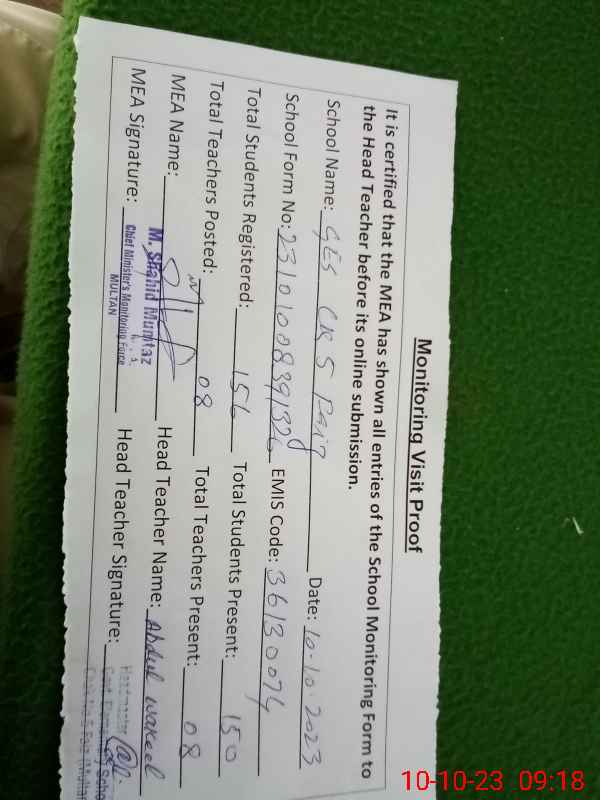 Monitoring Visit Proof
It is certified that the MEA has shown all entries of the School Monitoring Form to
the Head Teacher before its online submission.
School Name: GES CK 5 Faiz Date: 10-10-2023
School Form No: 23101008391326 EMIS Code: 36130074
Total Students Registered: 156 Total Students Present: 150
Total Teachers Posted: 08 Total Teachers Present: 08
MEA Name: Head Teacher Name: Abdul wakeel
M. Shahid Mumtaz
MEA Signature: Chief Minister's Monitoring Force Head Teacher Signature:
MULTAN
Headmaster
10-10-23 09:18